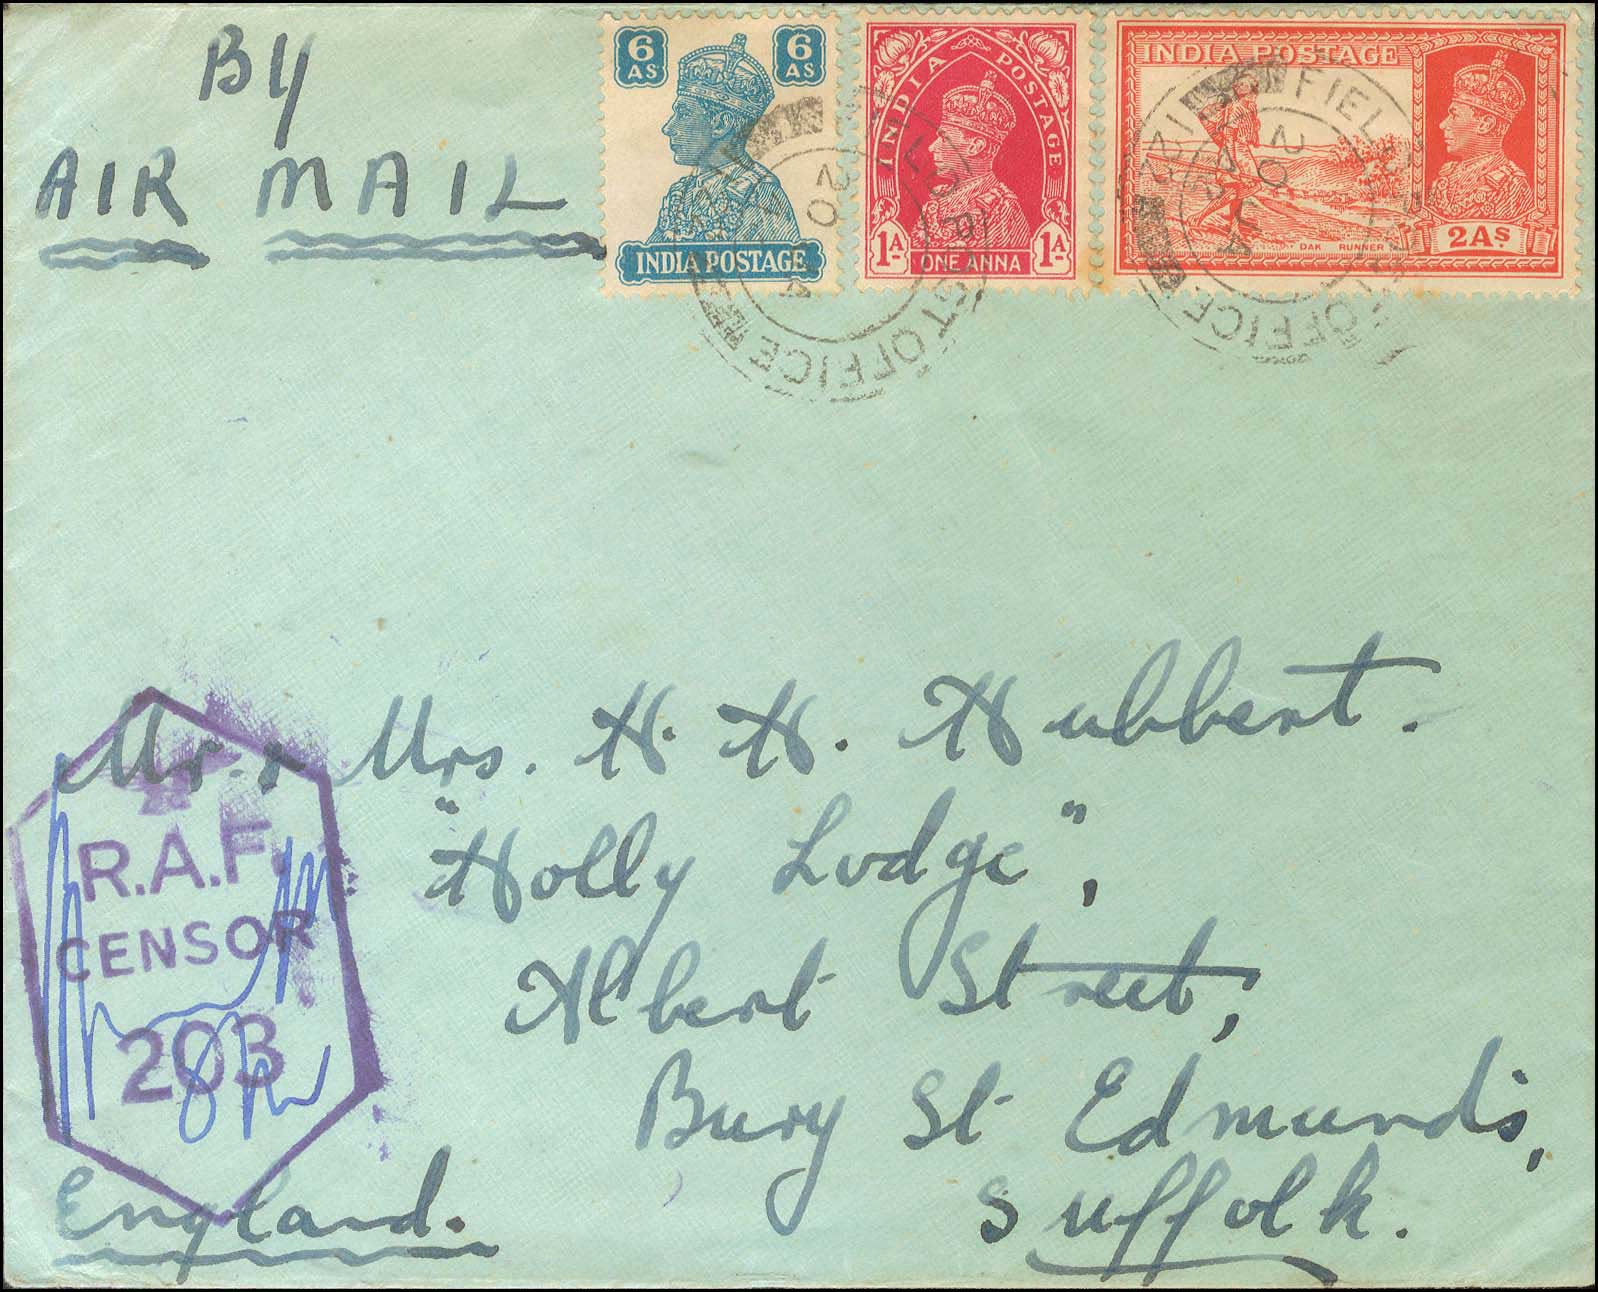 By
AIR MAIL
6 AS
6 AS
INDIA POSTAGE
INDIA POSTAGE
1A
ONE ANNA
1A
INDIA POSTAGE
DAK RUNNER
2AS
POST OFFICE
FIELD POST OFFICE
20
20
Mr. & Mrs. H. H. Hubbert.
"Holly Lodge",
Albert Street,
Bury St Edmund's,
Suffolk.
England.
R.A.F.
CENSOR
203